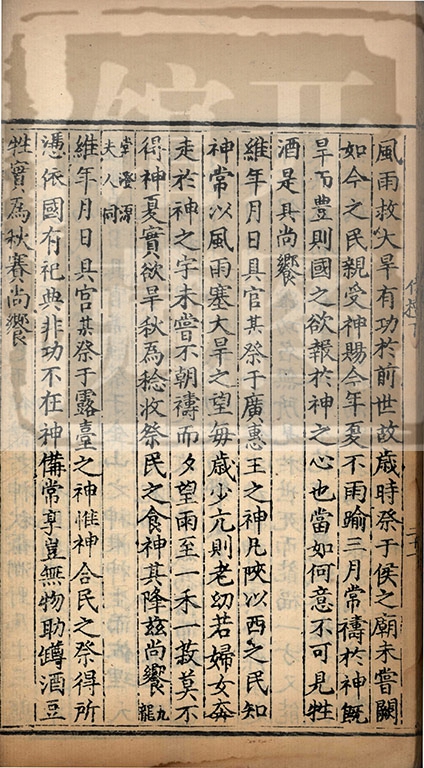 風雨救大旱有功於前世故歲時祭于侯之廟未嘗闕
如今之民親受神賜今年夏不雨踰三月常禱於神既
旱而豊則國之欲報於神之心也當如何意不可見牲
酒是具尚饗
維年月日具官某祭于廣惠王之神凡陜以西之民知
神常以風雨塞大旱之望每歲少亢則老幼若婦女奔
走於神之宇未嘗不朝禱而夕望雨至一禾一菽莫不
得神夏實欲旱秋為稔收祭民之食神其降茲尚饗九龍
堂澄源
夫人同
維年月日具官某祭于露臺之神惟神合民之祭得所
憑依國有祀典非功不在神備常享豈無物助罇酒豆
牲實為秋賽尚饗